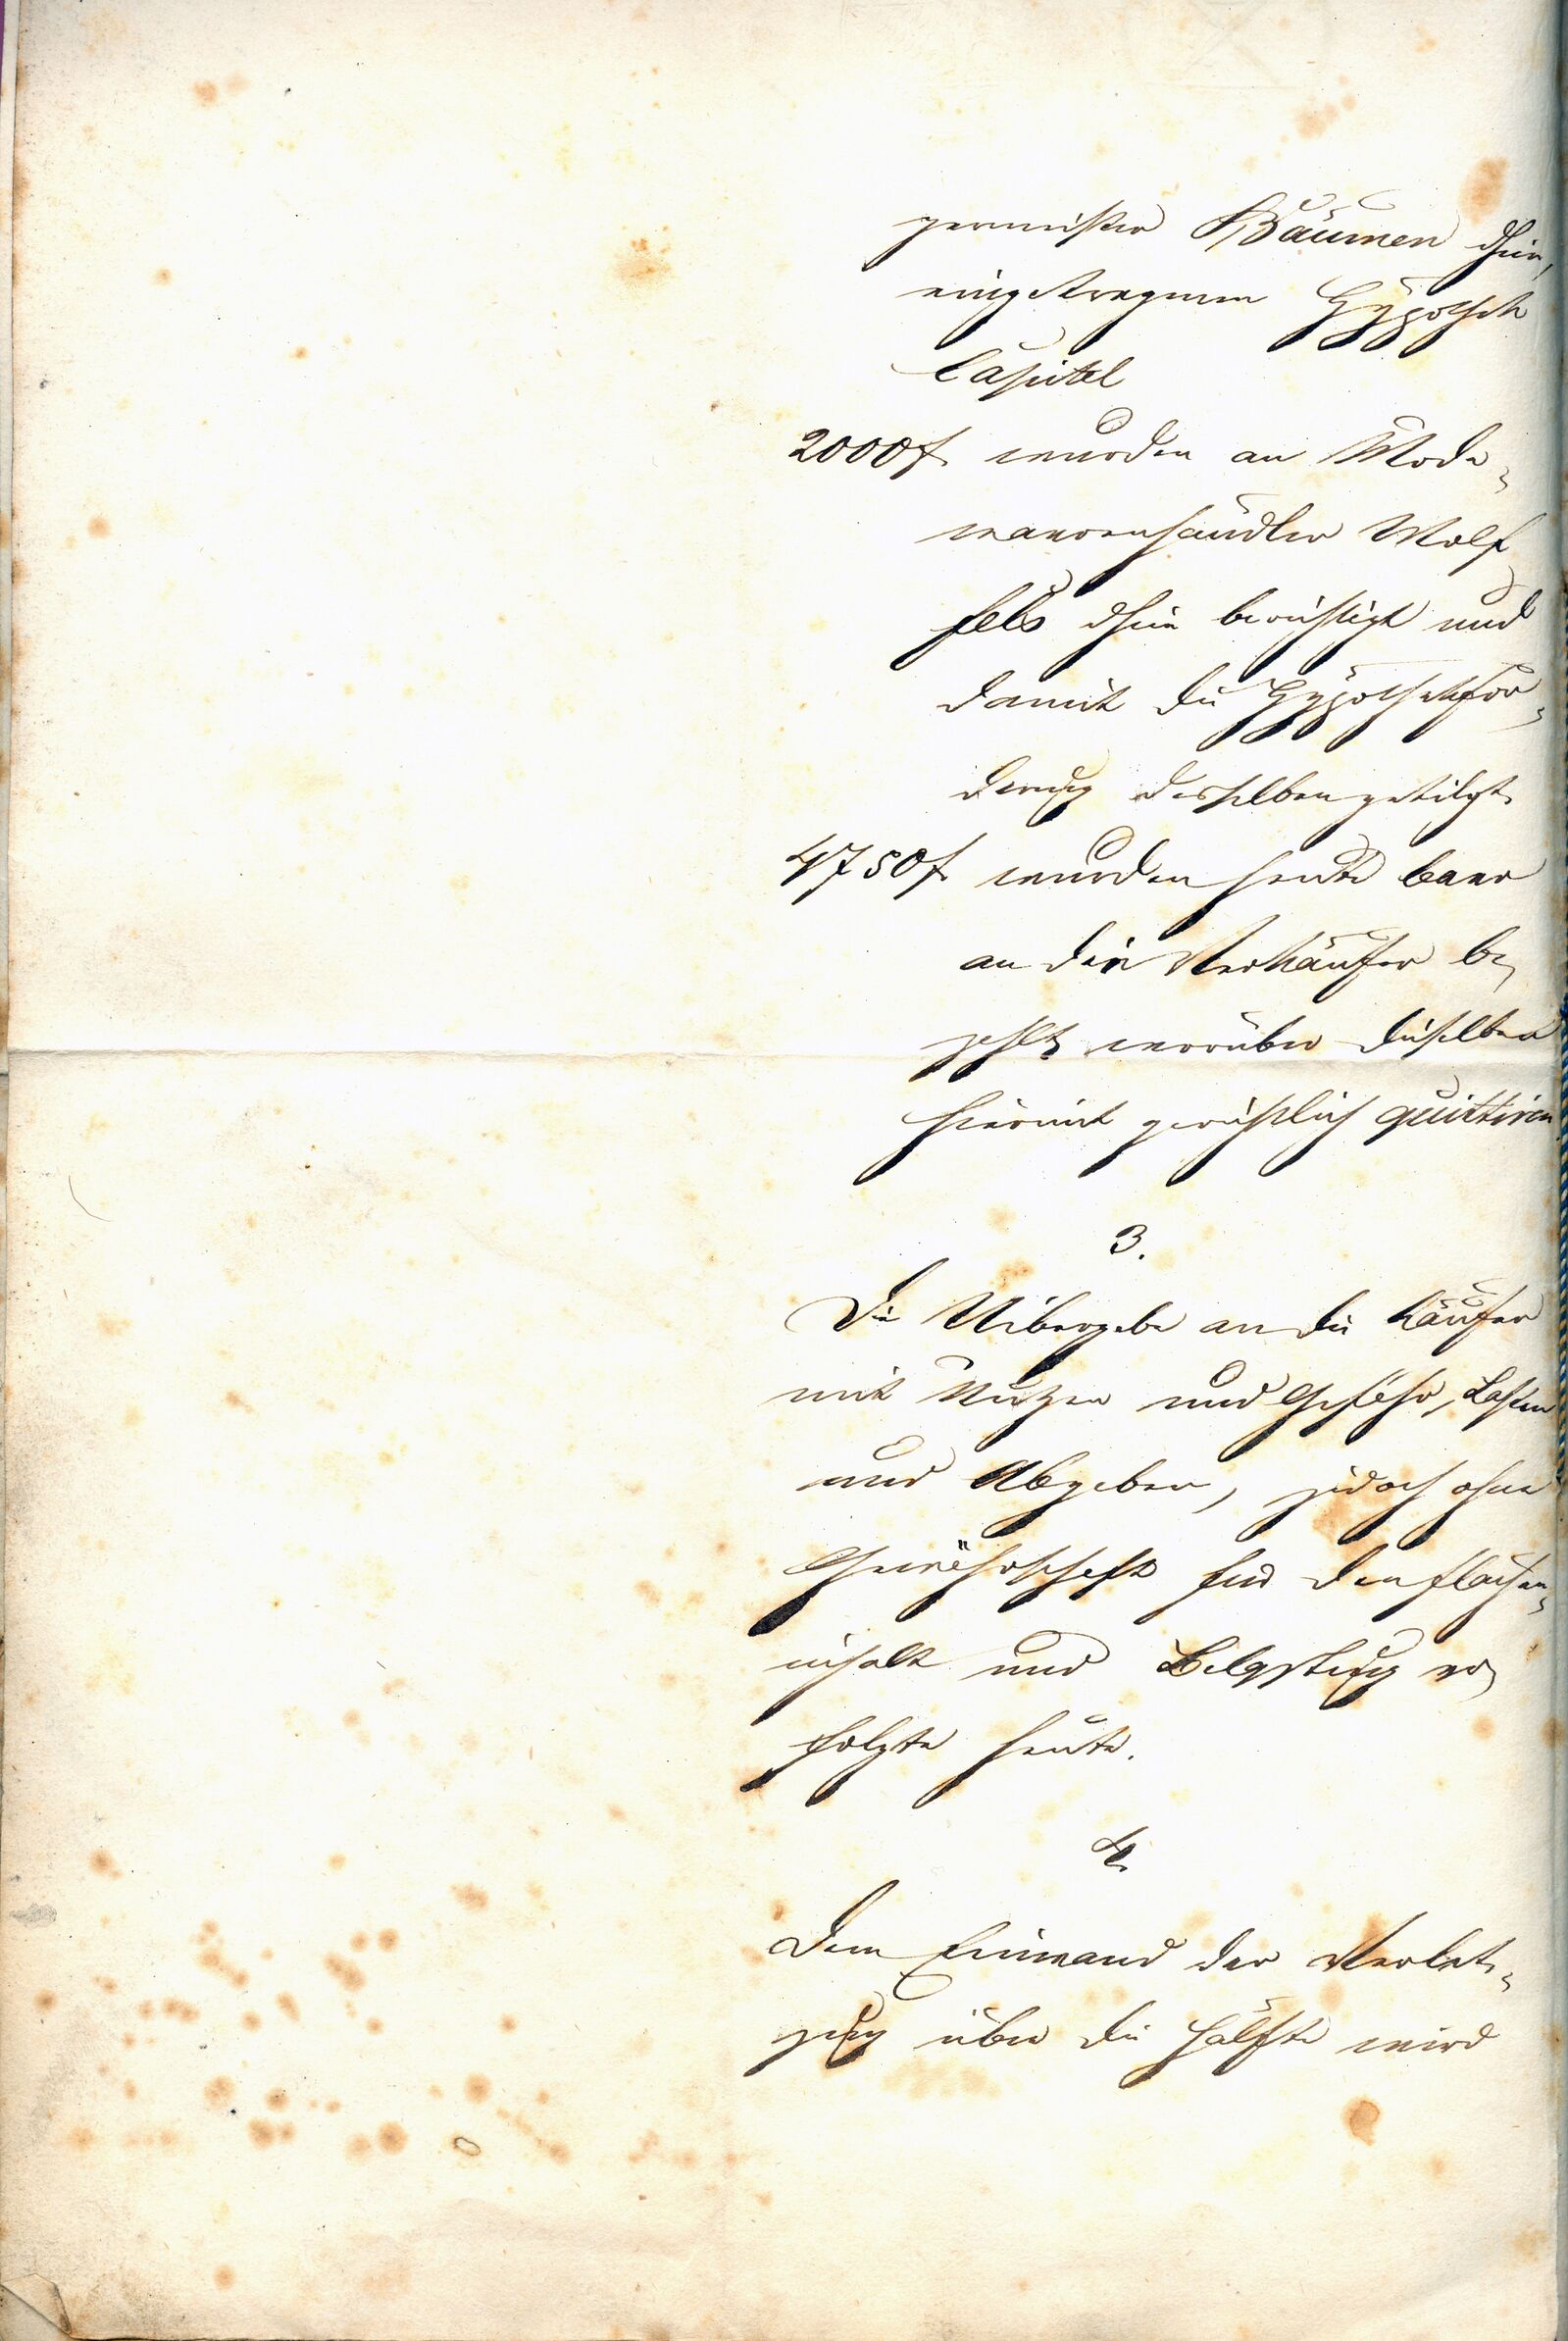 germeister Bäumen dhier,
eingetragenen Hypothek
Capitel
2000f wurden an Mode-
waarenhändler Wolf
fels dhier berichtigt und
damit die Hypothekfor-
derung desselben getilgt.
4750f wurden heute baar
an die Verkäufer be-
zahlt, worüber dieselben
hiermit gerichtlich quittiren
3.
Die Uibergabe an die Käufer
mit Nutzen und Gefahr, Lasten
und Abgaben, jedoch ohne
Gewährschaft für den Flächen-
inhalt und Belastung er-
folgte heute.
4.
Dem Einwand der Verlet-
zung über die Hälfte wird